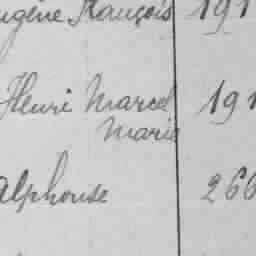 ugène François 191
Henri Marcel 191
Marie
Alphonse 266